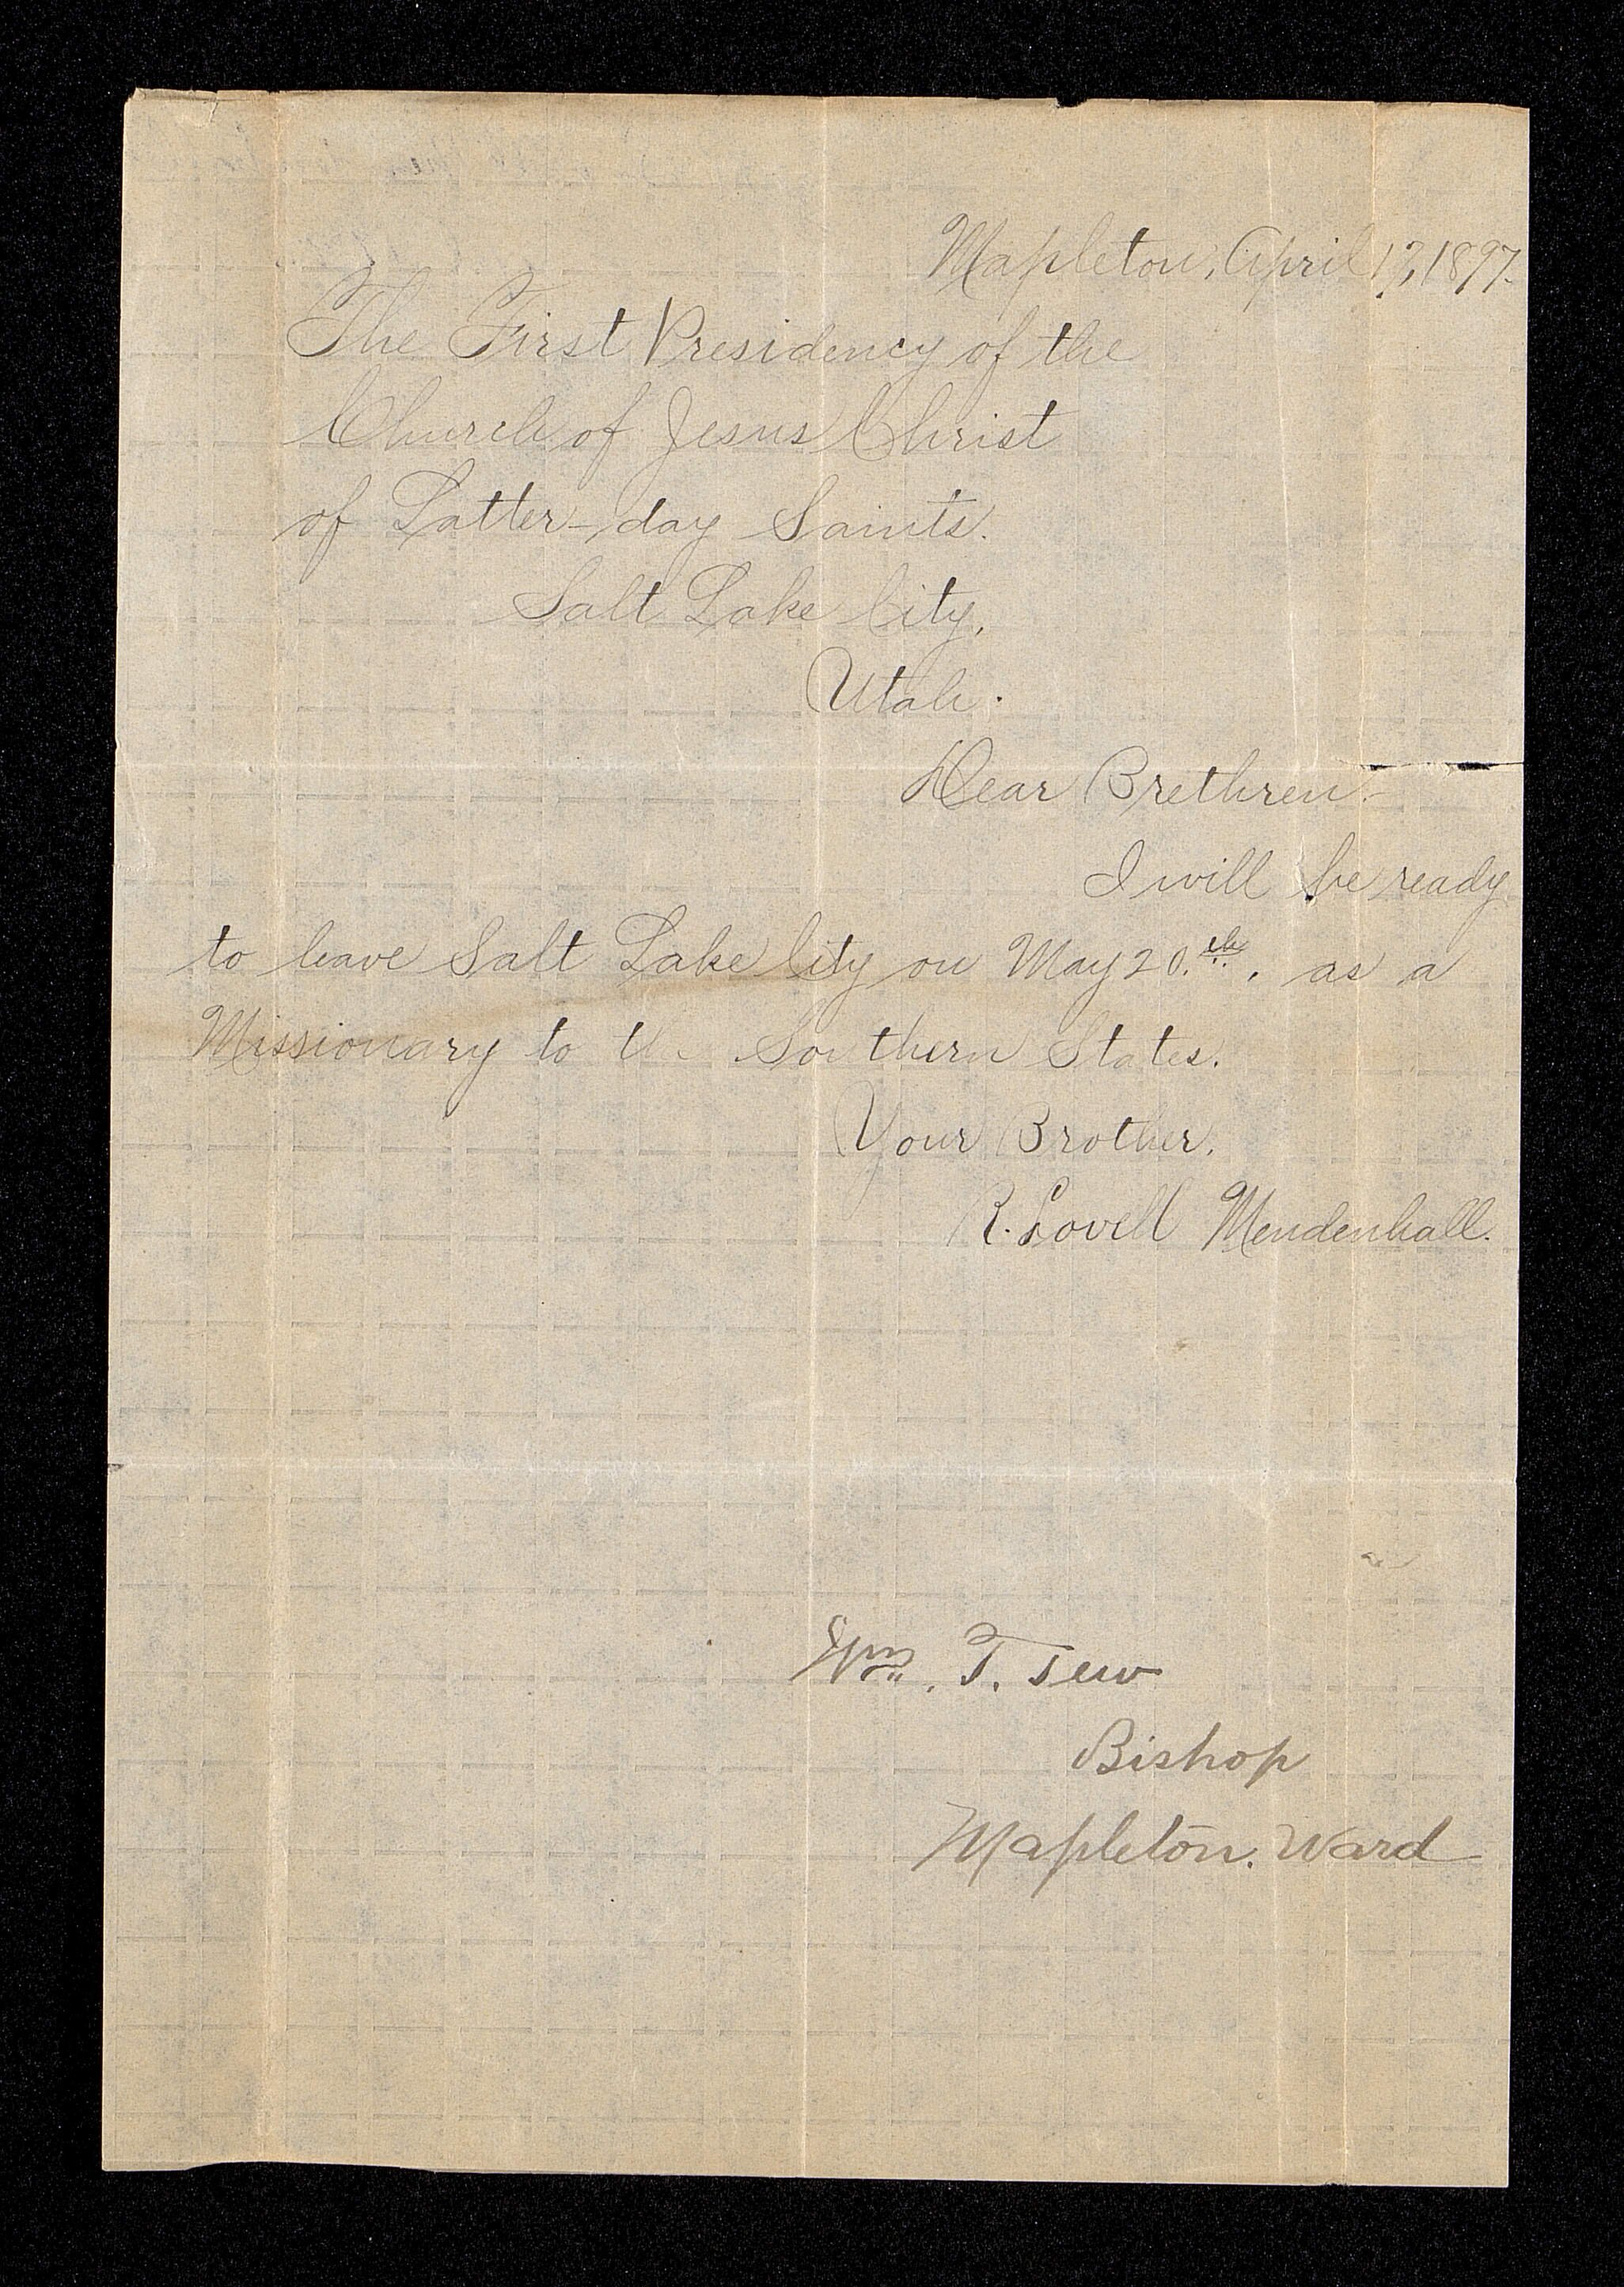 Mapleton, April 17, 1897.
The First Presidency of the
Church of Jesus Christ
of Latter-day Saints.
Salt Lake City,
Utah.
Dear Brethren-
I will be ready
to leave Salt Lake City on May 20.th, as a
Missionary to the Southern States.
Your Brother,
R. Lovell Mendenhall.
Wm. T. Tew
Bishop
Mapleton. Ward